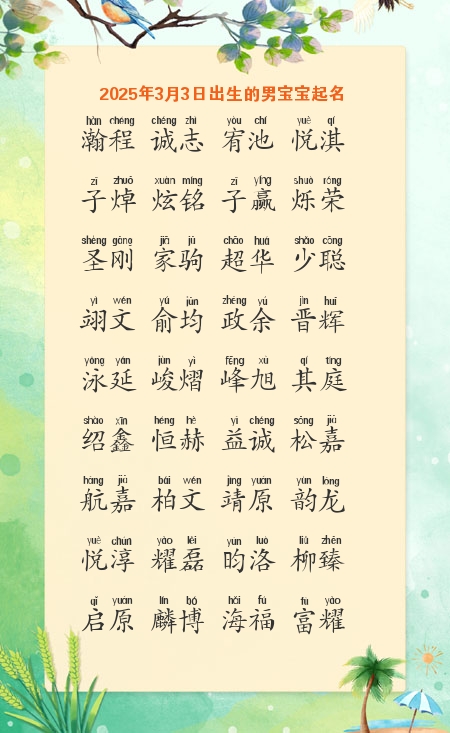 2025年3月3日出生的男宝宝起名
hàn chéng chéng zhì yòu chí yuè qí
瀚程 诚志 宥池 悦淇
zǐ zhuō xuàn míng zǐ yíng shuò róng
子焯 炫铭 子赢 烁荣
shèng gāng jiā jū chāo huá shào cōng
圣刚 家驹 超华 少聪
yì wén yú jūn zhèng yú jìn huī
翊文 俞均 政余 晋辉
yǒng yán jùn yì fēng xù qí tíng
泳延 峻熠 峰旭 其庭
shào xīn héng hè yì chéng sōng jiā
绍鑫 恒赫 益诚 松嘉
háng jiā bǎi wén jìng yuán yùn lóng
航嘉 柏文 靖原 韵龙
yuè chún yào lěi yún luò liǔ zhēn
悦淳 耀磊 昀洛 柳臻
qǐ yuán lín bó hǎi fú fù yào
启原 麟博 海福 富耀